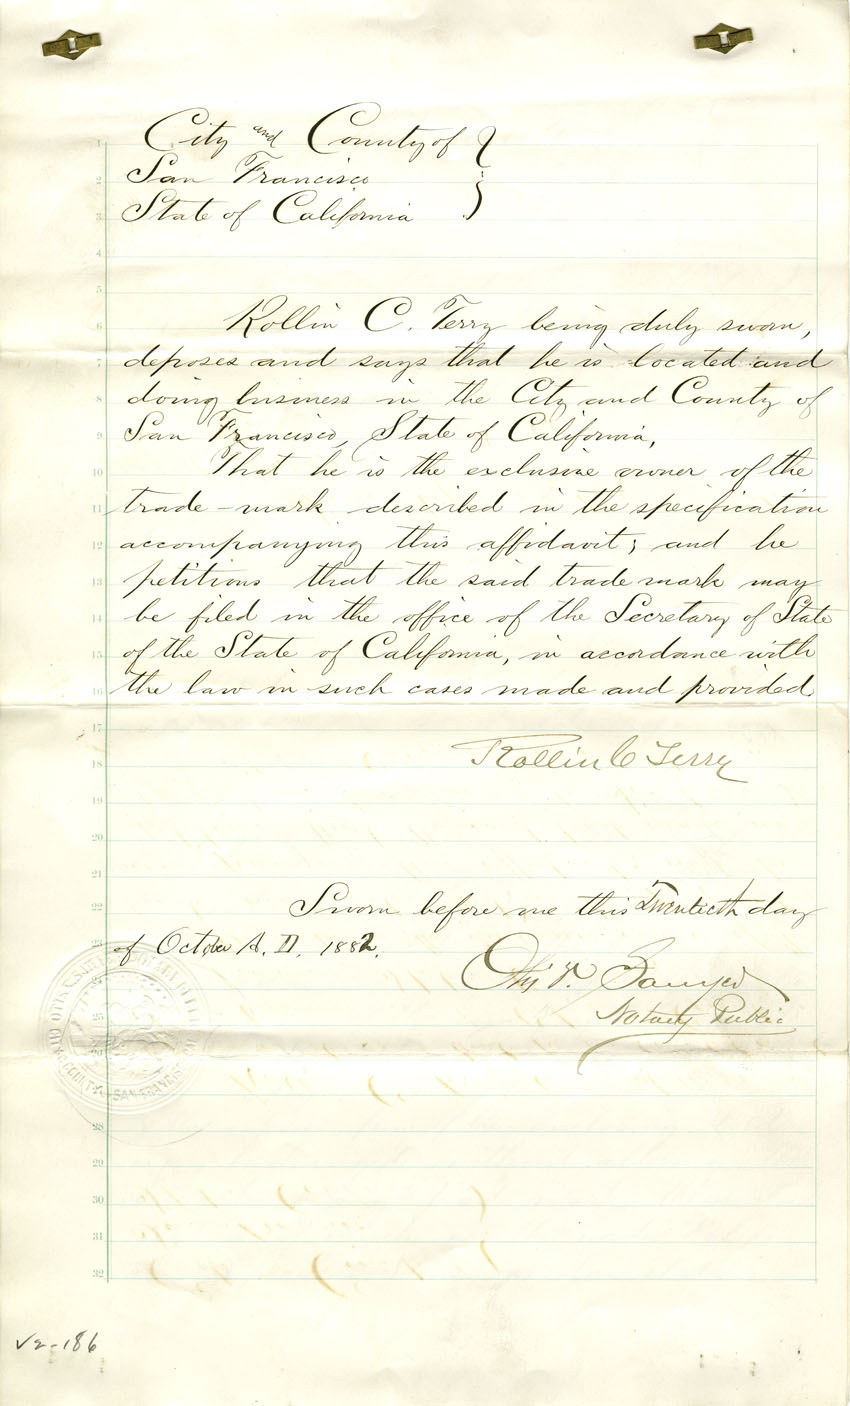 City and County of }
San Francisco
State of California
1
2
3
4
5
6
7
8
9
10
11
12
13
14
15
16
17
18
19
20
21
22
23
28
29
30
31
32
Rollin C. Terry being duly sworn,
deposes and says that he is located and
doing business in the City and County of
San Francisco, State of California,
That he is the exclusive owner of the
trade-mark described in the specification
accompanying this affidavit; and he
petitions that the said trade mark may
be filed in the office of the Secretary of State
of the State of California, in accordance with
the law in such cases made and provided
Rollin C Terry
Sworn before me this Twentieth day
of October A. D. 1882.
Otis V. Sawyer
Notary Public
COUNTY SAN FRANCISCO
V2-186